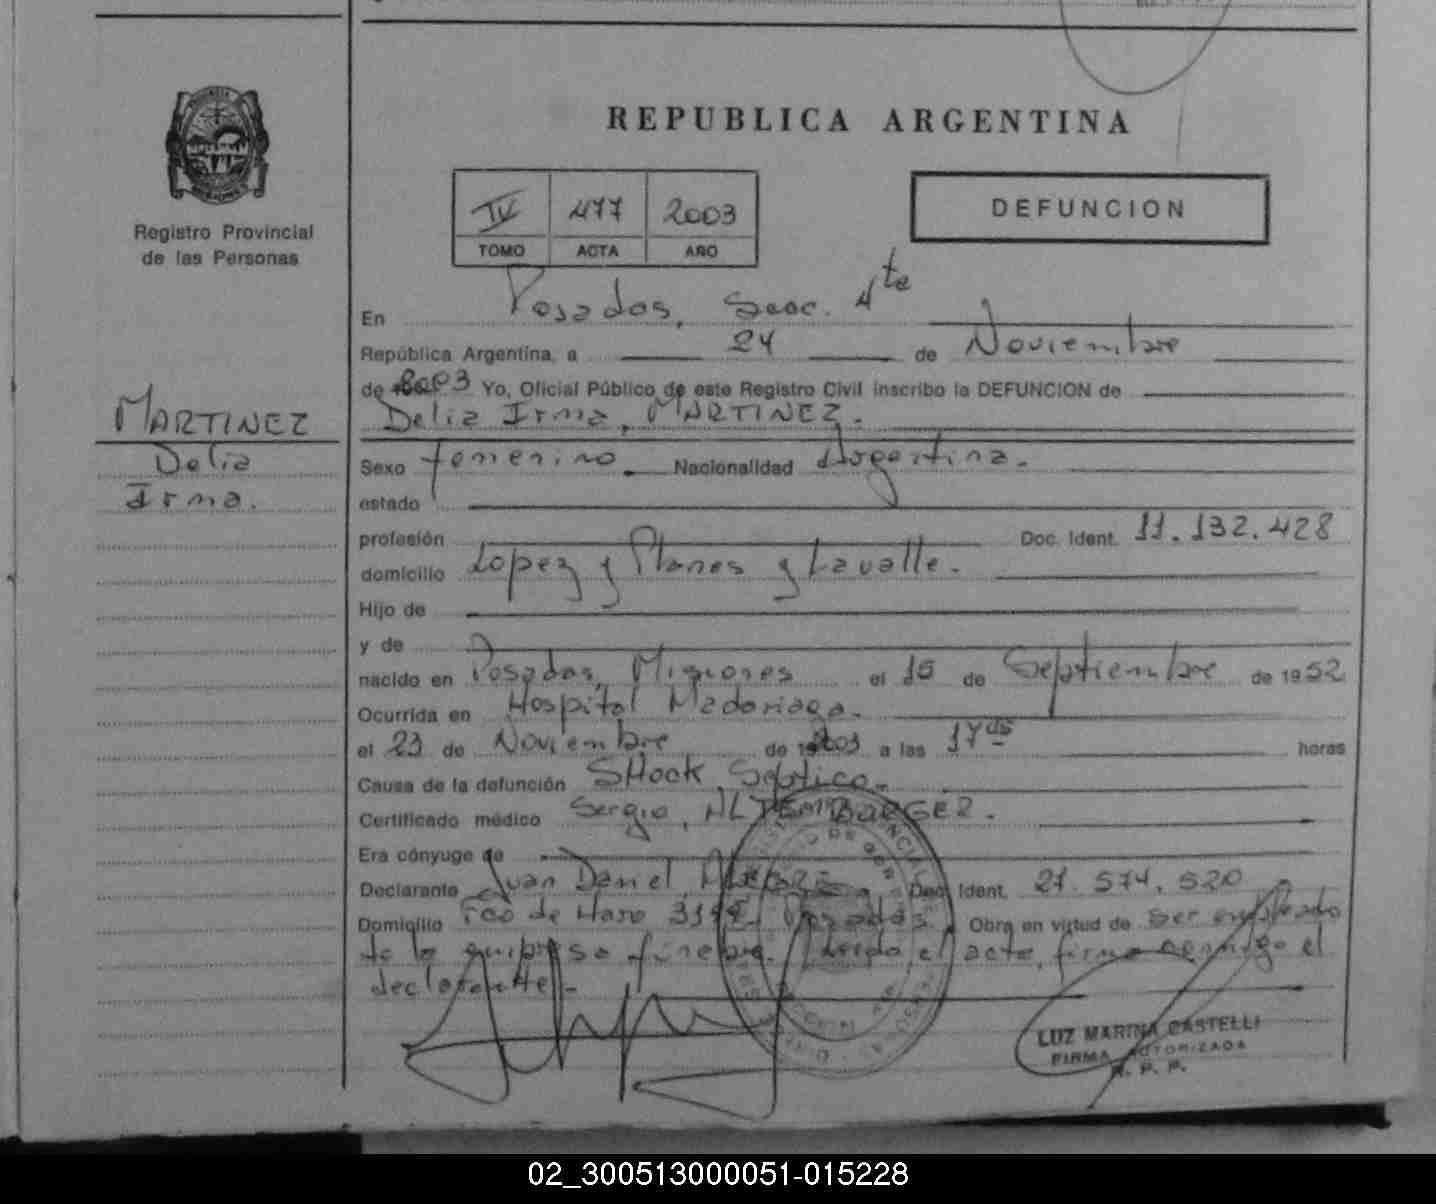 REPUBLICA ARGENTINA
Registro Provincial
de las Personas
IV 477 2003
TOMO ACTA AÑO
DEFUNCION
En Posadas, Secc. 4ta
República Argentina, a 24 de Noviembre
de 2003 Yo, Oficial Público de este Registro Civil inscribo la DEFUNCION de
MARTINEZ
Delia
Irma.
Delia Irma, MARTINEZ.
Sexo femenino. Nacionalidad Argentina.
estado
profesión Doc. Ident. 11.132.428
domicilio Lopez y Planes y Lavalle.
Hijo de
y de
nacido en Posadas, Misiones el 15 de Septiembre de 1952
Ocurrida en Hospital Madariaga.
el 23 de Noviembre de 2003 a las 17 horas
Causa de la defunción SHock Septico.
Certificado médico Sergio, ALTEMBURGER.
Era cónyuge de
Declarante Juan Daniel Doc. Ident. 21.574.520
Domicilio Fco de Haro Posadas. Obra en virtud de ser empleado
de la empresa fúnebre. Leida el acta, firma conmigo el
declarante.
LUZ MARINA CASTELLI
FIRMA AUTORIZADA
R. P. P.
02_300513000051-015228